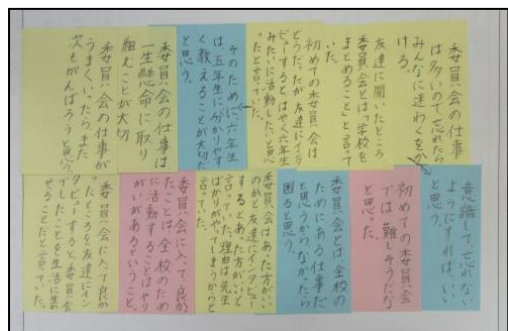 委員会の仕事
は多いので忘れたら
みんなに迷わくをか
ける。
友達に聞いたところ
委員会とは「学校を
まとめること」と言って
いた。
初めての委員会は
どうだったか友達にインタ
ビューするとはやく六年生
みたいに活動したいと思
ったと言っていた。
そのために六年生
は五年生に分かりやす
く教えることが大切だ
と思う。
委員会の仕事は
一生懸命に取り
組むことが大切
委員会の仕事が
うまくいったらまた
次もがんばろうと思う。
意識して忘れない
ようにすればいい
と思う。
初めての委員会
では難しそうだな
と思った。
委員会とは、全校の
ためにある仕事だ
と思うから、なかったら
困ると思う。
委員会はあった方がいい
のかと友達にインタビュー
するとあった方がいいと
言っていた。理由は先生
ばかりがやってしまうからと
言っていた。
委員会に入って良か
ったことは全校のため
に活動することはやり
がいがあるということ。
委員会に入って良か
ったところを友達にイン
タビューすると委員会
でしたことを生活に生か
せることだと言っていた。